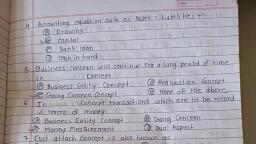 4. Accounting equation such as Asset = Liabilities +
Ⓐ Drawing
Ⓑ Capital
Ⓒ Bank loan
Ⓓ Cash in hand
5. Business concern will continue for a long period of time
in Concept
Ⓐ Business Entity Concept Ⓑ Realization Concept
Ⓒ Going Concern Concept Ⓓ None of the above
6 In Concept transactions which are to be record
in terms of money
Ⓐ Business Entity Concept Ⓑ Going Concern
Ⓒ Money Measurement Ⓓ Dual Aspect
7 Cost attach Concept is also known as